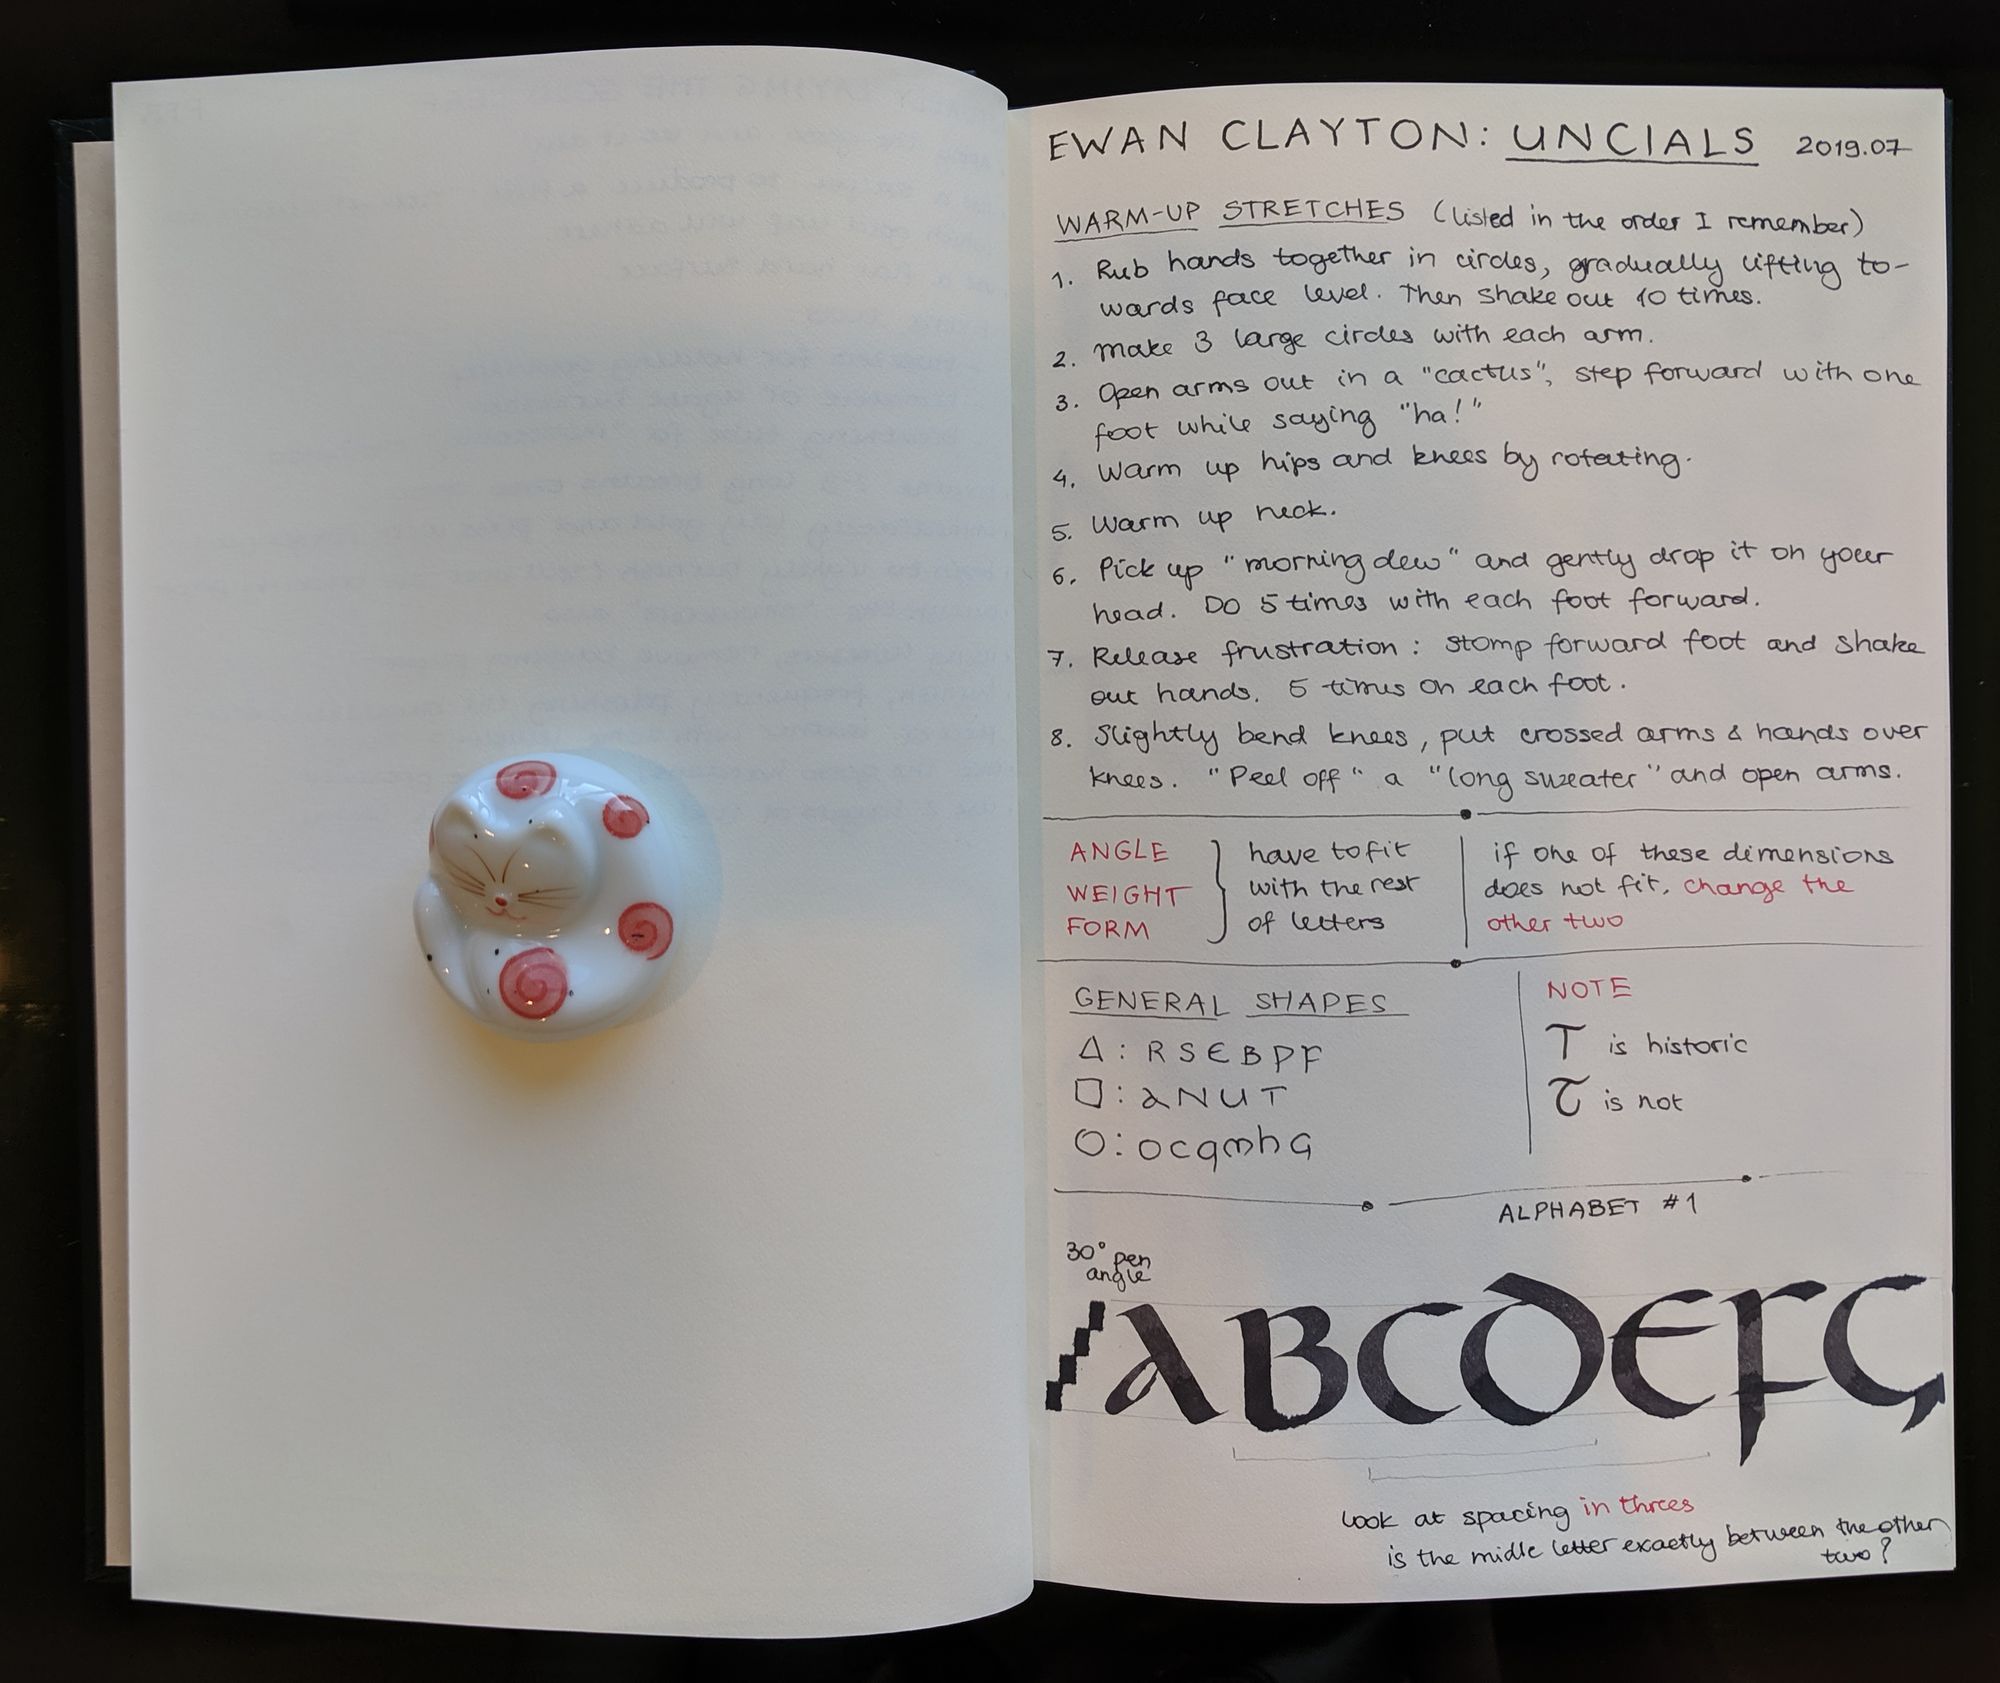 EWAN CLAYTON: UNCIALS 2019.07
WARM-UP STRETCHES (listed in the order I remember)
1. Rub hands together in circles, gradually lifting to-
wards face level. Then shake out 10 times.
2. Make 3 large circles with each arm.
3. Open arms out in a "cactus", step forward with one
foot while saying "ha!"
4. Warm up hips and knees by rotating.
5. Warm up neck.
6. Pick up "morning dew" and gently drop it on your
head. Do 5 times with each foot forward.
7. Release frustration: stomp forward foot and shake
out hands. 5 times on each foot.
8. Slightly bend knees, put crossed arms & hands over
knees. "Peel off" a "long sweater" and open arms.
ANGLE
WEIGHT
FORM
have to fit
with the rest
of letters
if one of these dimensions
does not fit, change the
other two
GENERAL SHAPES
△: R S E B P F
□: a N U T
○: o c q m h G
NOTE
T is historic
T is not
ALPHABET #1
30° pen
angle
ABCDEFG
look at spacing in threes
is the midle letter exactly between the other
two?